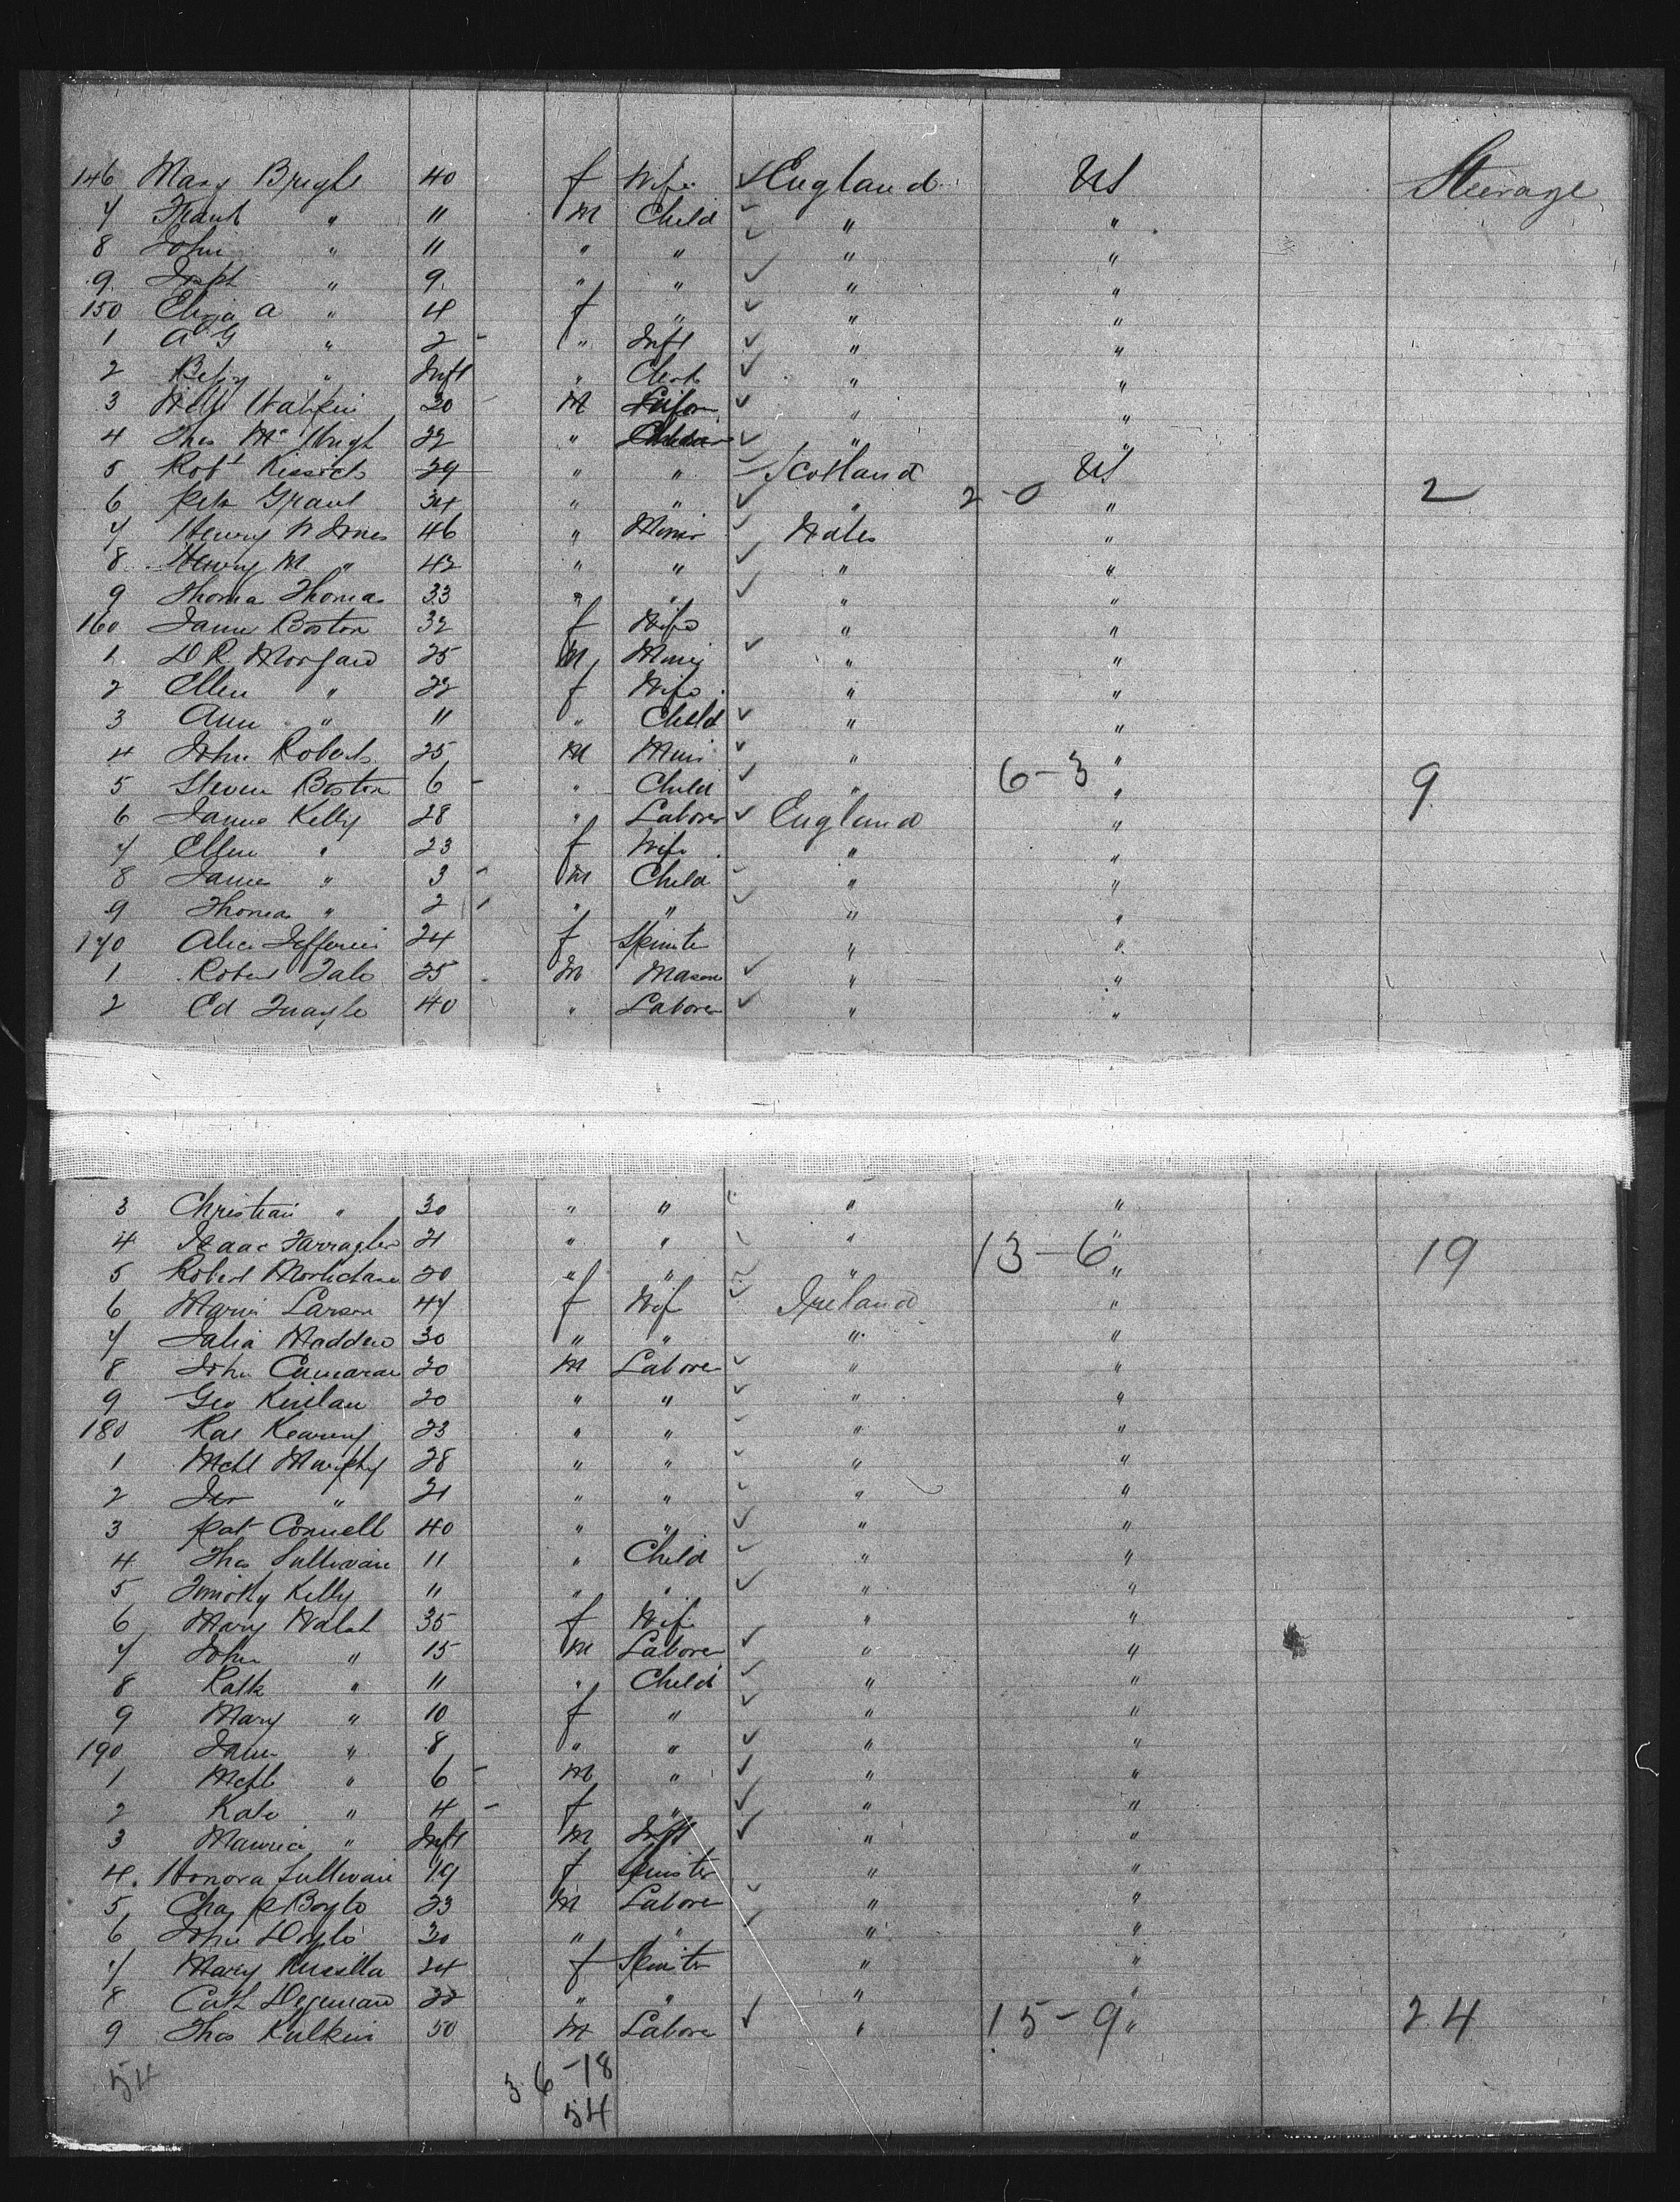 146 Mary Bright 40 f Wife ✓ England US Steerage
7 Frank " 11 M Child ✓ " "
8 John " 11 " " ✓ " "
9 Josph " 9 " " ✓ " "
150 Eliza A " 4 f " ✓ " "
1 A G " 2 - " Inft ✓ " "
2 Betsy " Inft " ✓ " "
3 Will 20 - M ✓ " "
4 Thos Mc Hugh 22 " ✓ " "
5 Robt 29 " " ✓ Scotland US
6 Petr Grant 34 " " ✓ " 2-0 " 2
7 Henry W Jones 46 " Miner ✓ Wales "
8 Henry M " 42 " " ✓ " "
9 Thomas Thomas 33 " " ✓ " "
160 Jane Boston 32 f Wife " "
1 D R Morgan 25 M Miner ✓ " "
2 Ellen " 22 f Wife " "
3 Ann " 11 " Child ✓ " "
4 John Roberts 25 M Miner ✓ " "
5 Steven Boston 6 - " Child ✓ " 6-3 " 9
6 James Kelly 28 " Laborer ✓ England "
7 Ellen " 23 f Wife " "
8 James " 3 - M Child ✓ " "
9 Thomas " 2 " " ✓ " "
170 Alice 24 f Spinster " "
1 Robert 25 M Mason ✓ " "
2 Ed Quayle 40 " Laborer ✓ " "
3 Christian " 30 " " ✓ " "
4 Isaac 21 " " ✓ " 13-6 " 19
5 Robert 20 " " ✓ " "
6 Maria Larson 47 f Wife ✓ Ireland "
7 Julia Madden 30 " " " "
8 John 20 M Laborer ✓ " "
9 Geo 20 " " ✓ " "
180 Kearney 23 " " ✓ " "
1 Mchl Murphy 28 " " ✓ " "
2 Jer " 21 " " ✓ " "
3 Pat Connell 40 " " ✓ " "
4 Thos Sullivan 11 " Child ✓ " "
5 Timothy Kelly 11 " " ✓ " "
6 Mary Walsh 35 f Wife " "
7 John " 15 M Laborer ✓ " "
8 Patk " 11 " Child ✓ " "
9 Mary " 10 f " ✓ " "
190 Jane " 8 " " ✓ " "
1 Mchl " 6 - M " ✓ " "
2 Kate " 4 - f " ✓ " "
3 Maurice " Inft M Inft ✓ " "
4 Honora Sullivan 19 f Spinster " "
5 Chas P Boyle 23 M Laborer ✓ " "
6 John Doyle 30 " " ✓ " "
7 Mary 24 f Spinster " "
8 Cath 22 " " " "
9 Thos 50 M Laborer ✓ " 15-9 " 24
54 3 6-18
54